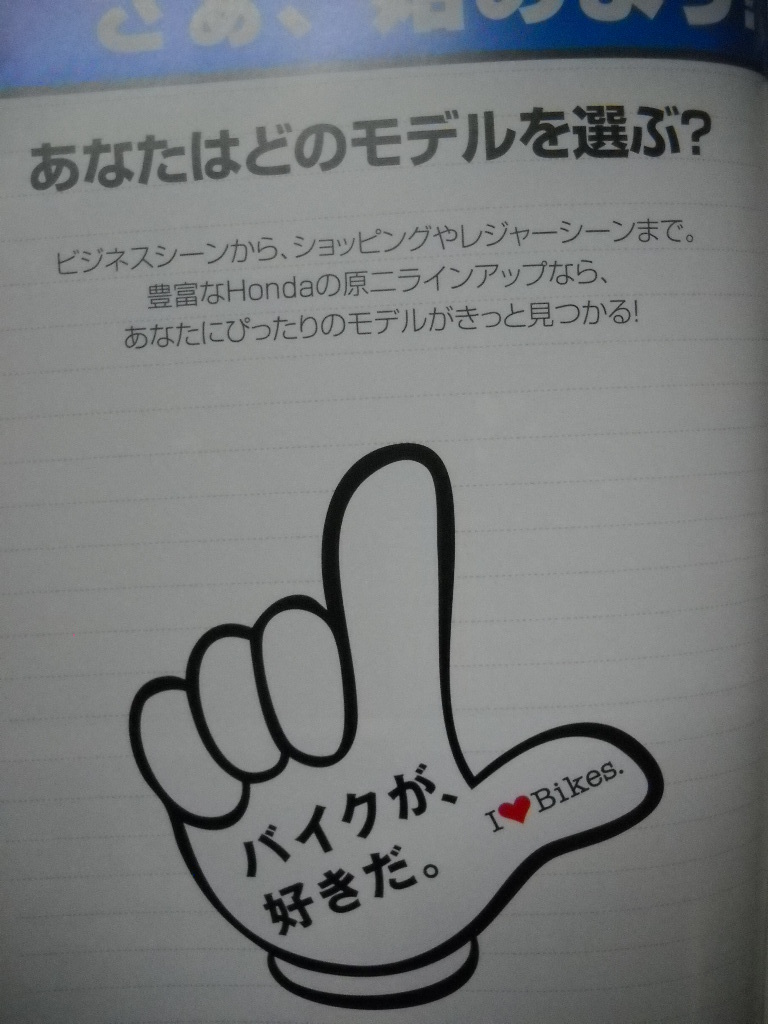 さあ、始めよう!
あなたはどのモデルを選ぶ?
ビジネスシーンから、ショッピングやレジャーシーンまで。
豊富なHondaの原二ラインアップなら、
あなたにぴったりのモデルがきっと見つかる!
バイクが、
好きだ。
I❤Bikes.